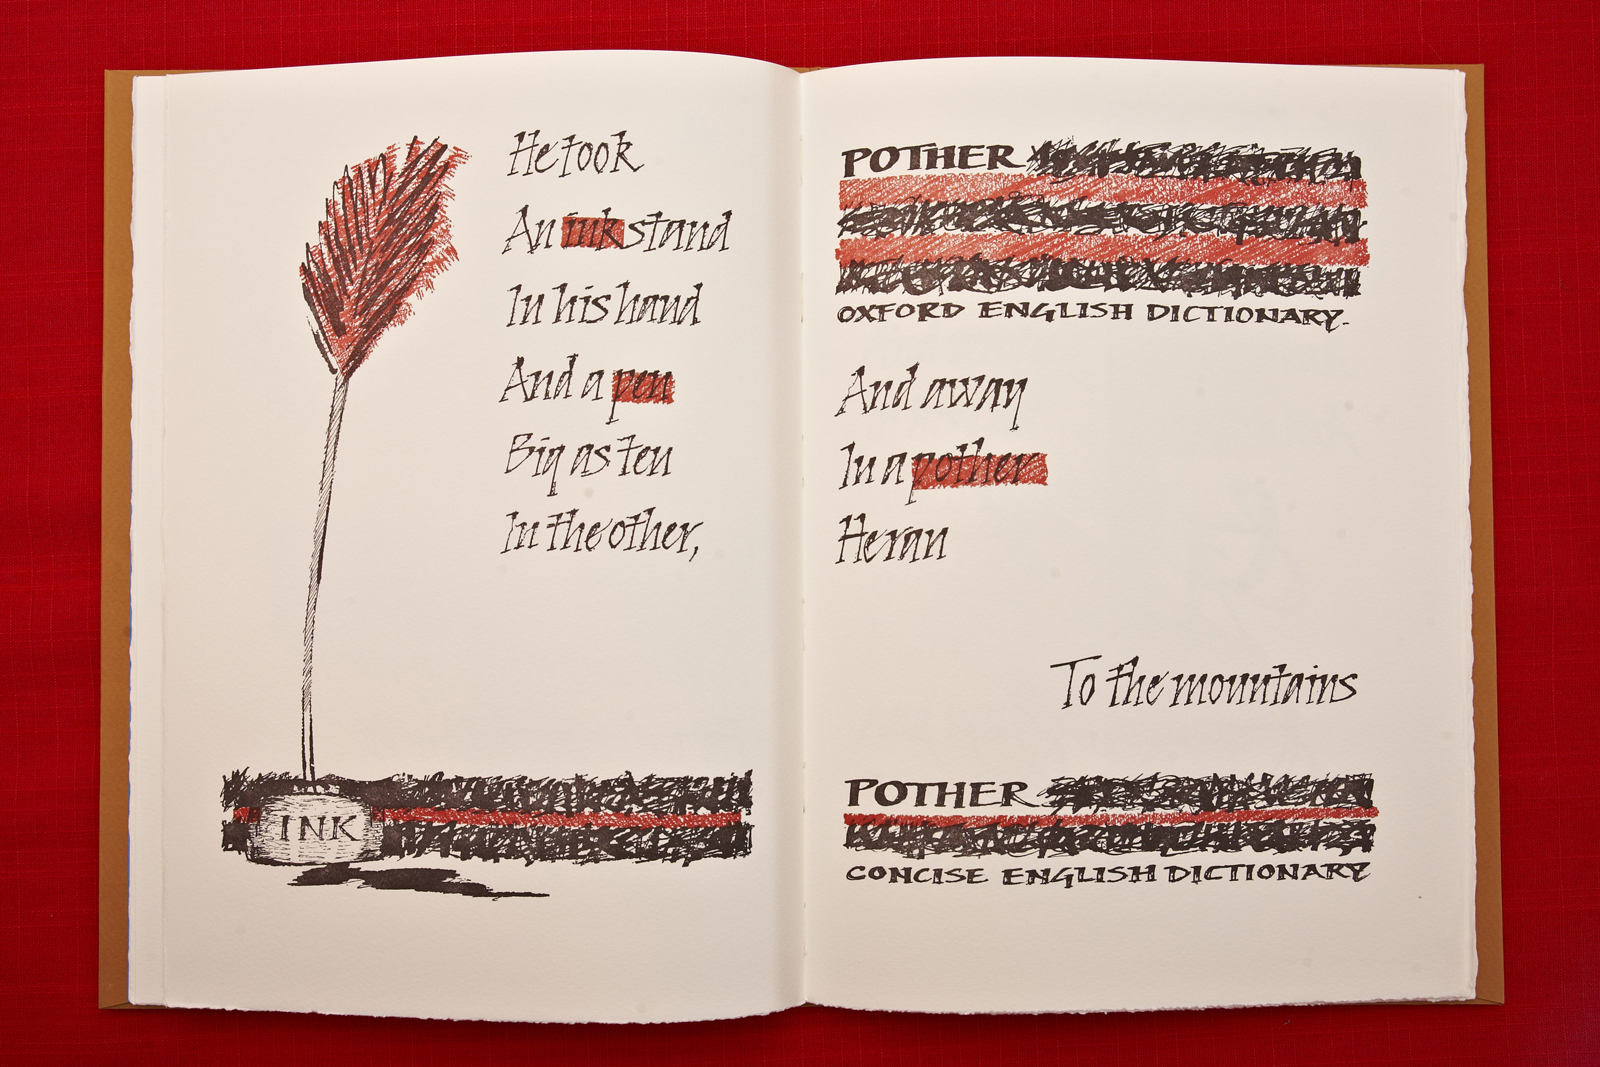 He took
An inkstand
In his hand
And a pen
Big as ten
In the other,
INK
POTHER
OXFORD ENGLISH DICTIONARY.
And away
In a pother
He ran
To the mountains
POTHER
CONCISE ENGLISH DICTIONARY